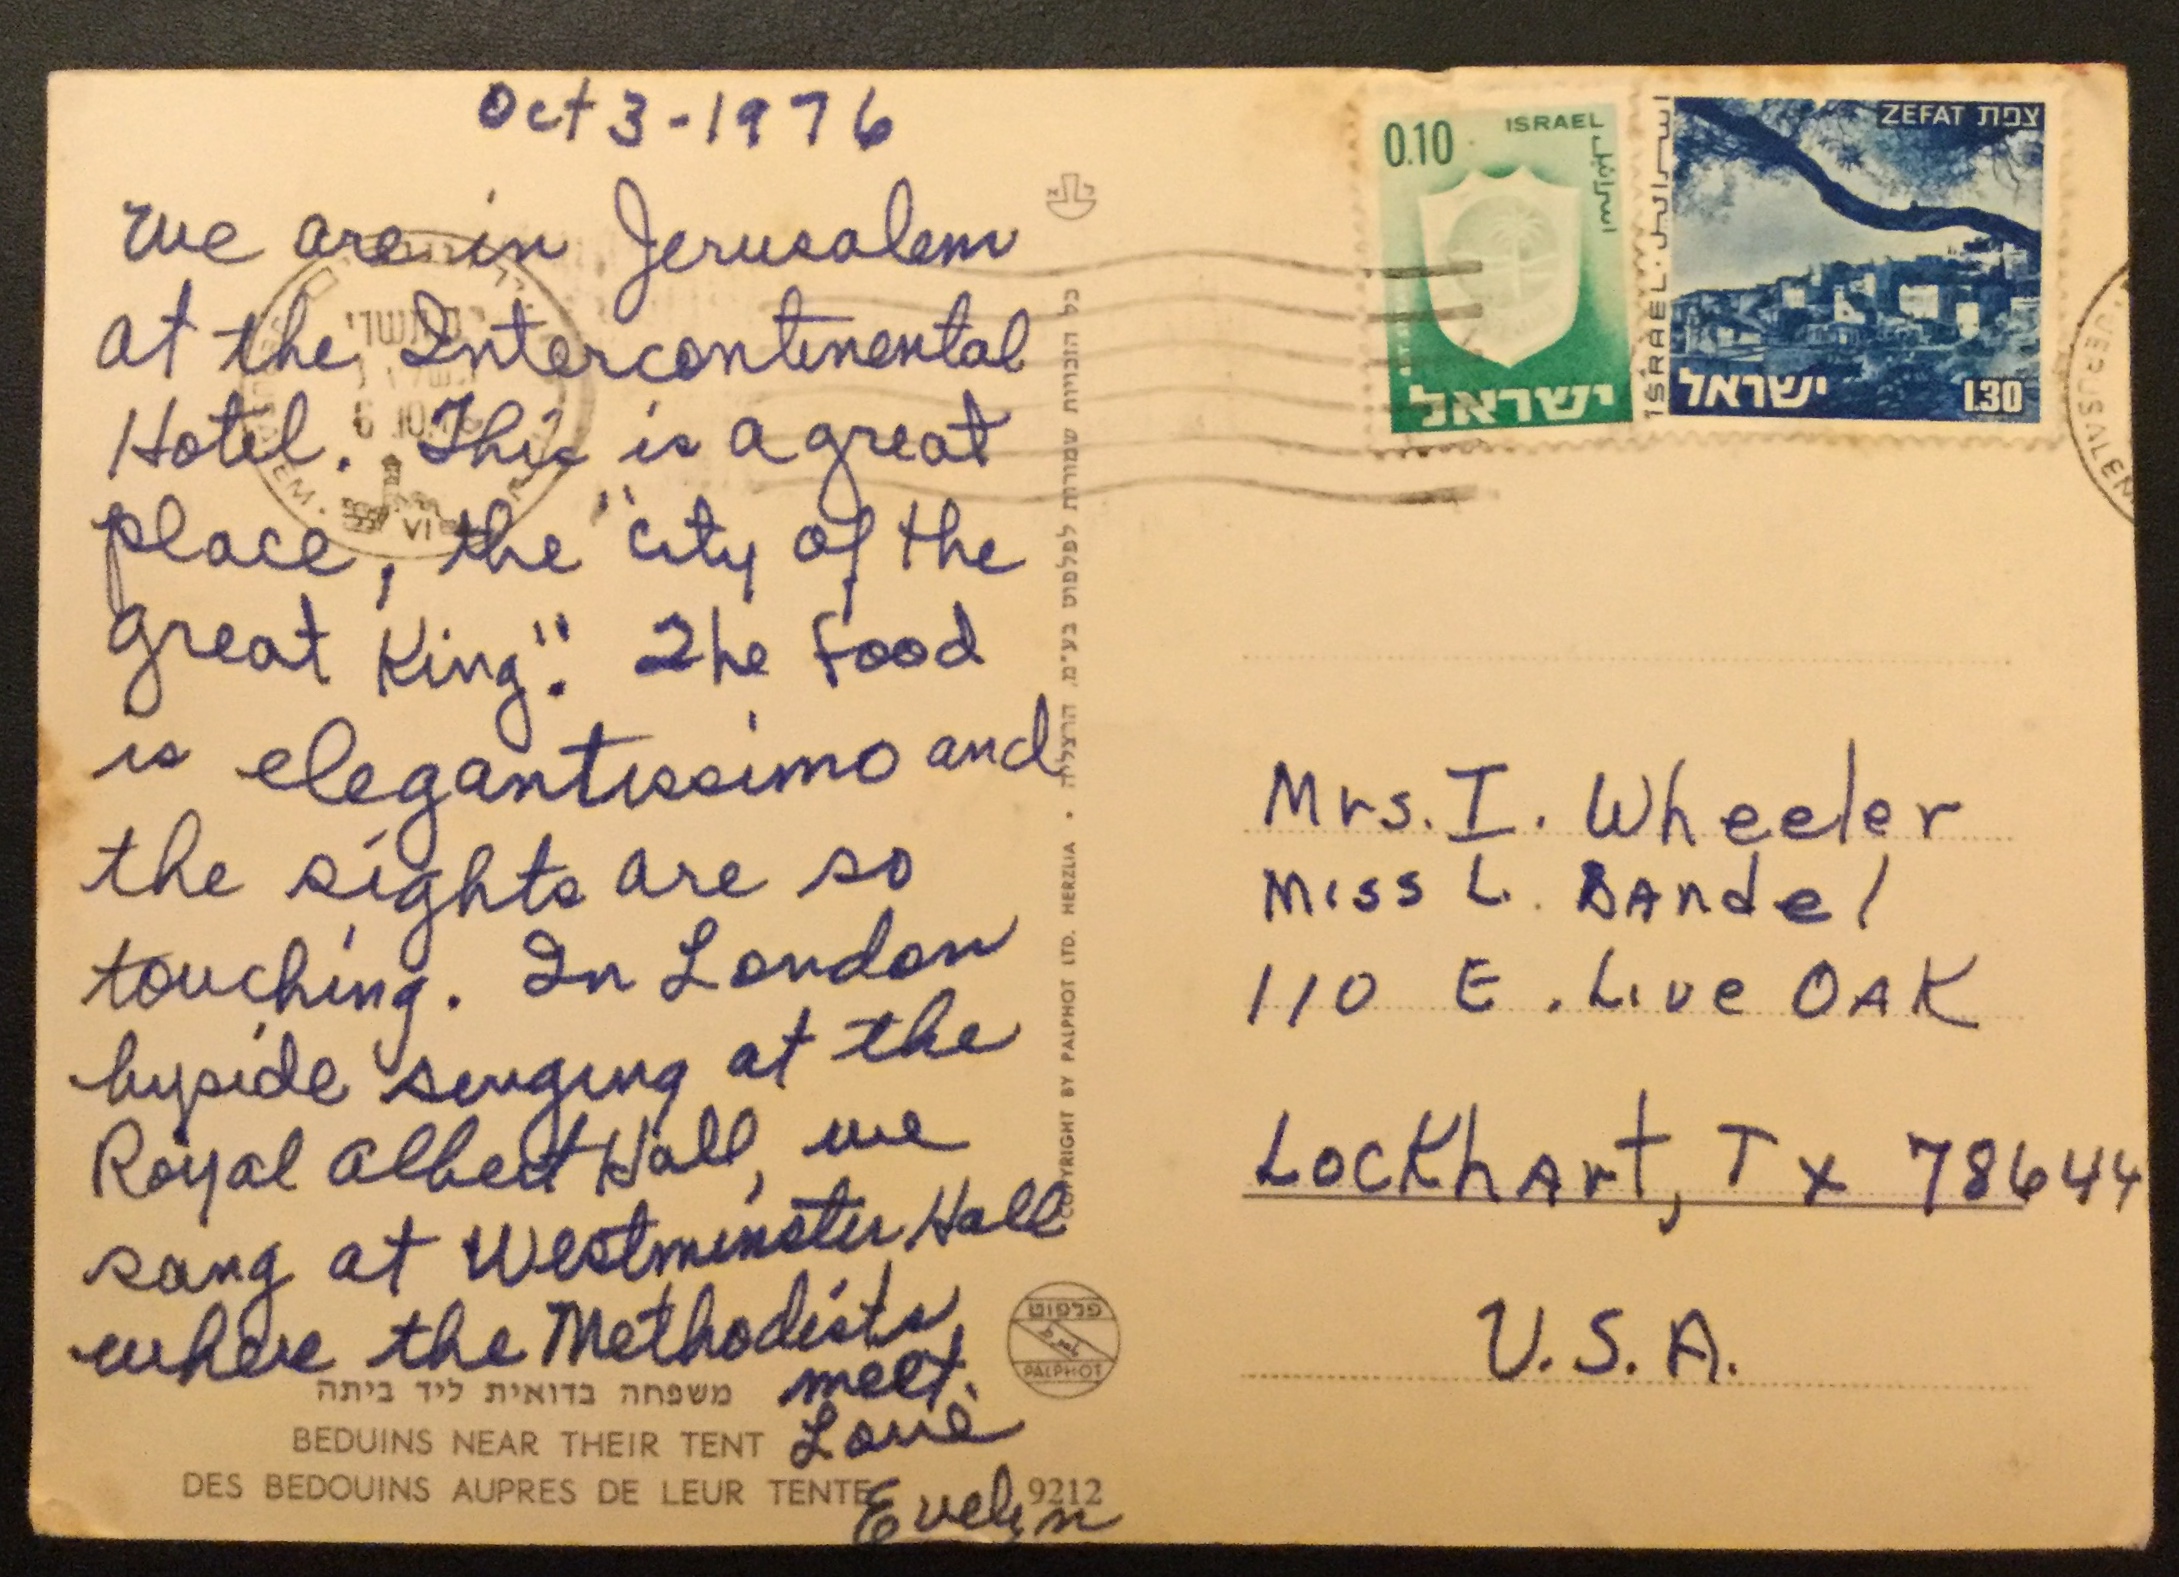 Oct 3-1976
we are in Jerusalem
at the Intercontinental
Hotel. This is a great
place, the "city of the
great King". The food
is elegantissimo and
the sights are so
touching. In London
byside singing at the
Royal Albert Hall, we
sang at Westminster Hall
where the Methodists
meet.
Love
Evelyn
משפחה בדואית ליד ביתה
BEDUINS NEAR THEIR TENT
DES BEDOUINS AUPRES DE LEUR TENTE
9212
כל הזכויות שמורות לפלפוט בע"מ, הרצליה • COPYRIGHT BY PALPHOT LTD. HERZLIA
פלפוט
PALPHOT
0.10 ISRAEL
اسرائيل
ישראל
ZEFAT צפת
ISRAEL اسرائيل
ישראל 1.30
JERUSALEM
6.10.76
VI
Mrs. I. Wheeler
Miss L. Bandel
110 E. Live OAK
Lockhart, Tx 78644
U.S.A.